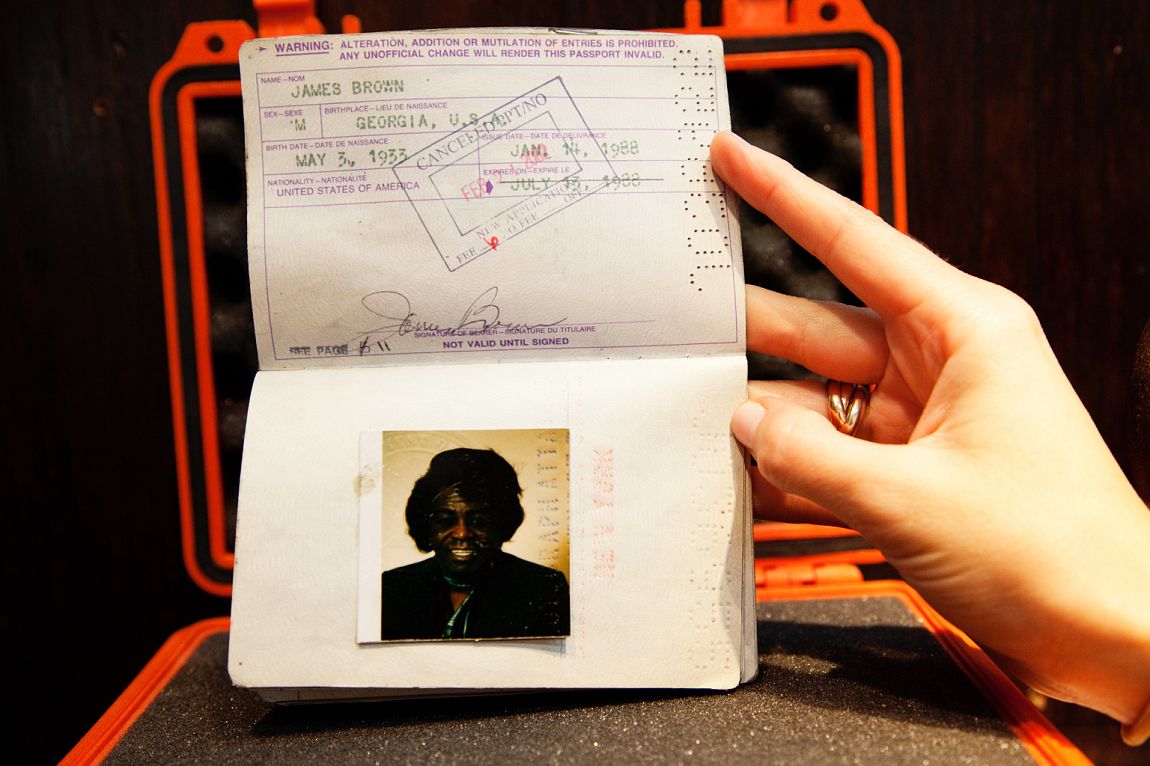 WARNING: ALTERATION, ADDITION OR MUTILATION OF ENTRIES IS PROHIBITED.
ANY UNOFFICIAL CHANGE WILL RENDER THIS PASSPORT INVALID.
NAME–NOM
JAMES BROWN
SEX–SEXE BIRTHPLACE–LIEU DE NAISSANCE
M GEORGIA, U.S.A.
BIRTH DATE–DATE DE NAISSANCE ISSUE DATE–DATE DE DÉLIVRANCE
MAY 3, 1933 JAN. 14, 1988
NATIONALITY–NATIONALITÉ EXPIRES ON–EXPIRE LE
UNITED STATES OF AMERICA JULY 1988
NEW APPLICATION
FEE NO FEE
FEB
James Brown
SIGNATURE OF BEARER–SIGNATURE DU TITULAIRE
SEE PAGE 11
NOT VALID UNTIL SIGNED
NEW YORK